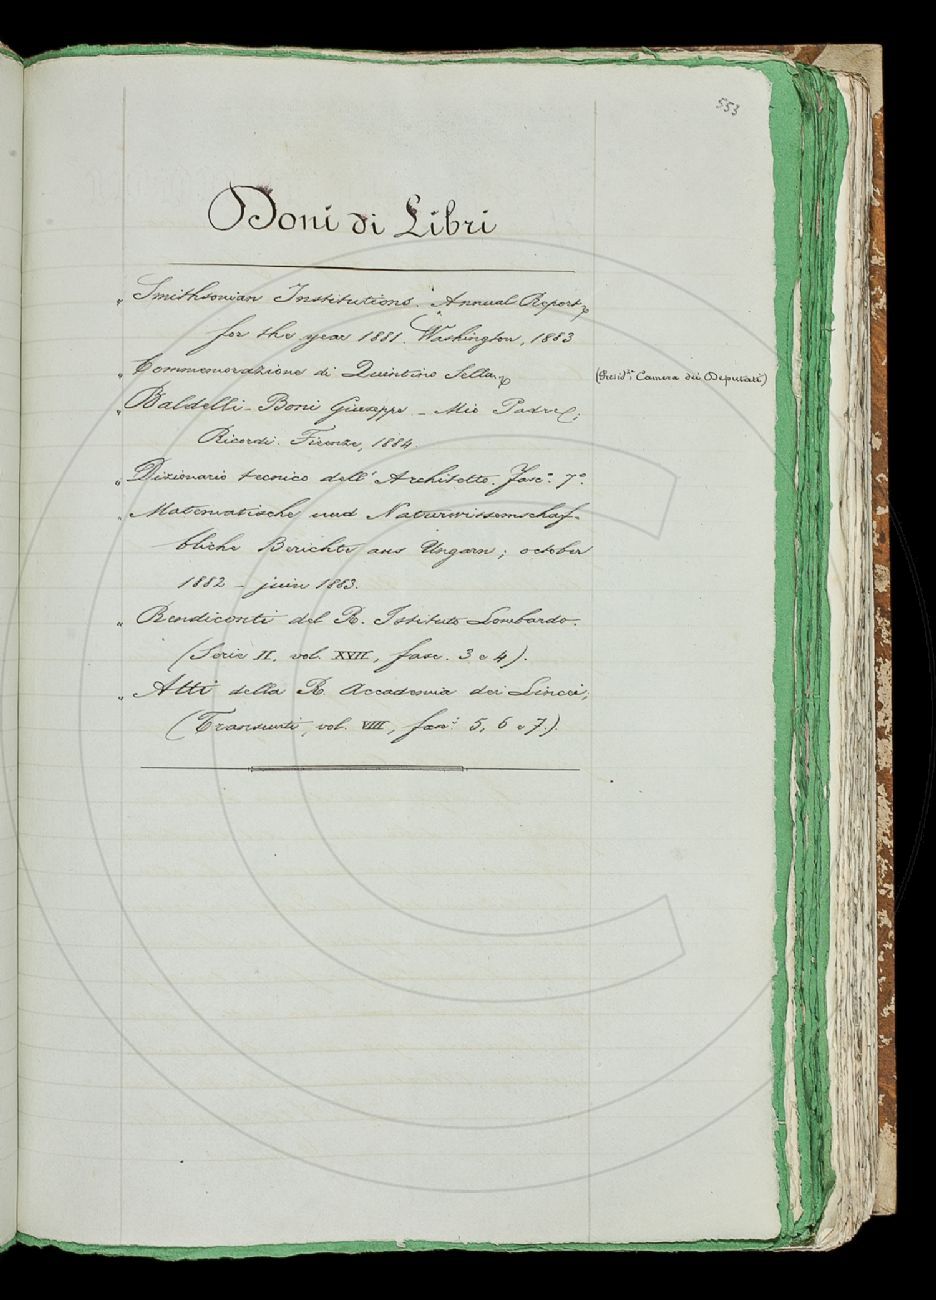 553
Doni di Libri
„ Smithsonian Institutions. "Annual Report„
for the year 1881. Washington, 1883
„ Commemorazione di Quintino Sella„
(Presid.za Camera dei Deputati)
„ Baldelli-Boni Giuseppe - Mio Padre;
Ricordi. Firenze, 1884.
„ Dizionario tecnico dell'Architetto. Fasc.° 7°.
„ Matematische und Naturwissenschaf-
tliche Berichte aus Ungarn; october
1882 - juin 1883.
„ Rendiconti del R. Istituto Lombardo.
(Serie II, vol. XVII, fasc. 3 e 4).
„ Atti della R. Accademia dei Lincei;
(Transunti, vol. VIII, fasc.i 5, 6 e 7.)